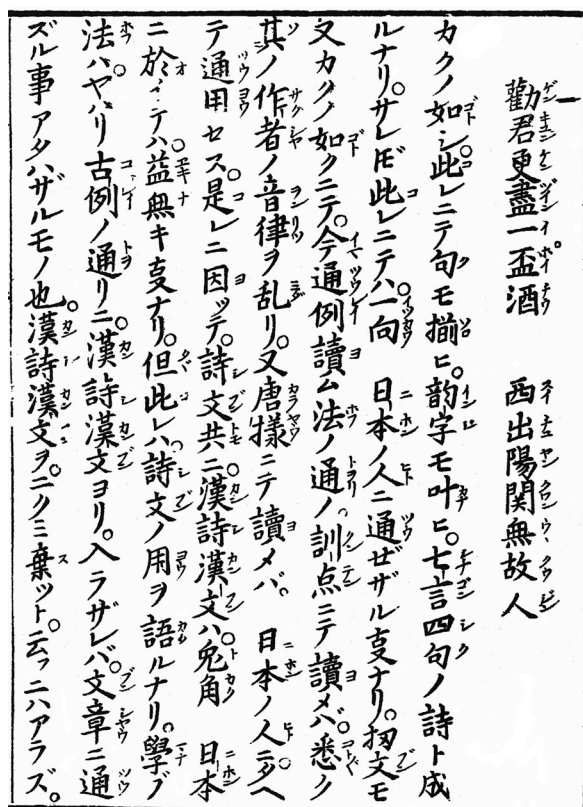 勸君更盡一盃酒　西出陽関無故人
カクノ如シ此レニテ句モ揃ヒ。韵字モ叶ヒ。七言四句ノ詩ト成
ルナリ。サレ𪜈此レニテハ。一向　日本ノ人ニ通ゼザル事ナリ。扨文モ
又カクノ如クニテ。今通例讀ム法ノ通ノ訓点ニテ讀メバ。悉ク
其ノ作者ノ音律ヲ乱リ。又唐様ニテ讀メバ。日本ノ人ニタヘ
テ通用セス。是レニ因ッテ。詩文共ニ。漢詩漢文ハ。兎角　日本
ニ於イテハ。益無キ事ナリ。但此レハ。詩文ノ用ヲ語ルナリ。學ブ
法ハ。ヤハリ古例ノ通リニ。漢詩漢文ヨリ。入ラザレバ。文章ニ通
ズル事アタハザルモノ也。漢詩漢文ヲ。ニクミ棄ツト。云フニハアラズ。